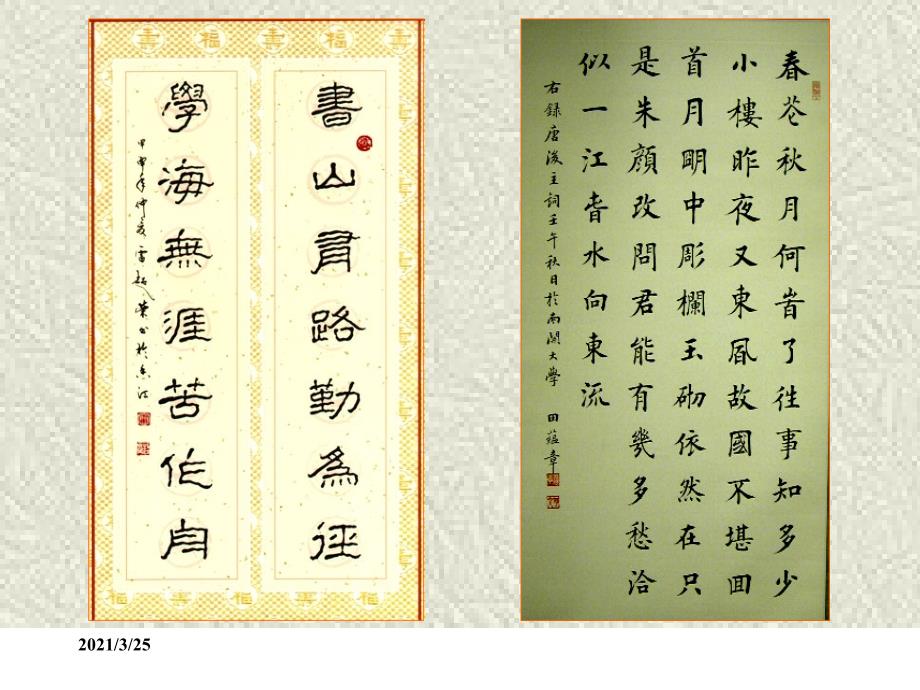 書山有路勤為徑
學海無涯苦作舟
甲申年仲夏雷榮书於香江
春花秋月何旹了往事知多少
小樓昨夜又東風故國不堪回
首月明中彫欄玉砌依然在只
是朱顏改問君能有幾多愁恰
似一江旾水向東流
右錄唐後主詞壬午秋日於南開大學 田蘊章
2021/3/25